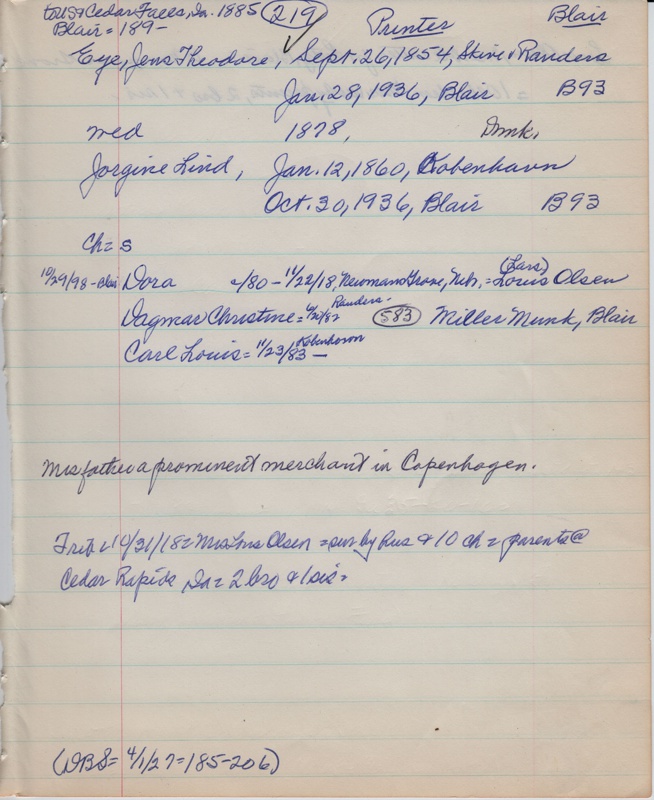 to US & Cedar Falls, Ia. 1885 (219) Printer Blair
Blair = 189-
Eye, Jens Theodore, Sept. 26, 1854, Skive & Randers
Jan. 28, 1936, Blair B93
med 1878, Dmk.
Jorgine Lind, Jan. 12, 1860, Kobenhavn
Oct. 30, 1936, Blair B93
Ch = s
10/29/98 - Blair Dora -/80 - 11/22/18, Newman Grove, Neb. = (Lars) Louis Olsen
Dagmar Christine = Randers - (583) Miller Munk, Blair
Carl Louis = 11/23/83 - Kobenhavn
Mrs father a prominent merchant in Copenhagen.
Trib = 10/31/18 = Mrs Olsen = sur by hus & 10 ch = parents @
Cedar Rapids, Ia = 2 bro & 1 sis =
(DBS = 4/1/27 = 185-206)